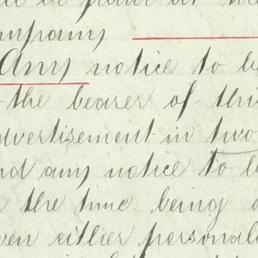 company
Any notice to be
the bearer of this
advertisement in two
and any notice to be
the time being
even either personal